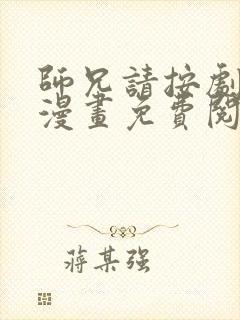 師兄請按劇
漫畫免費閱
蔣某强